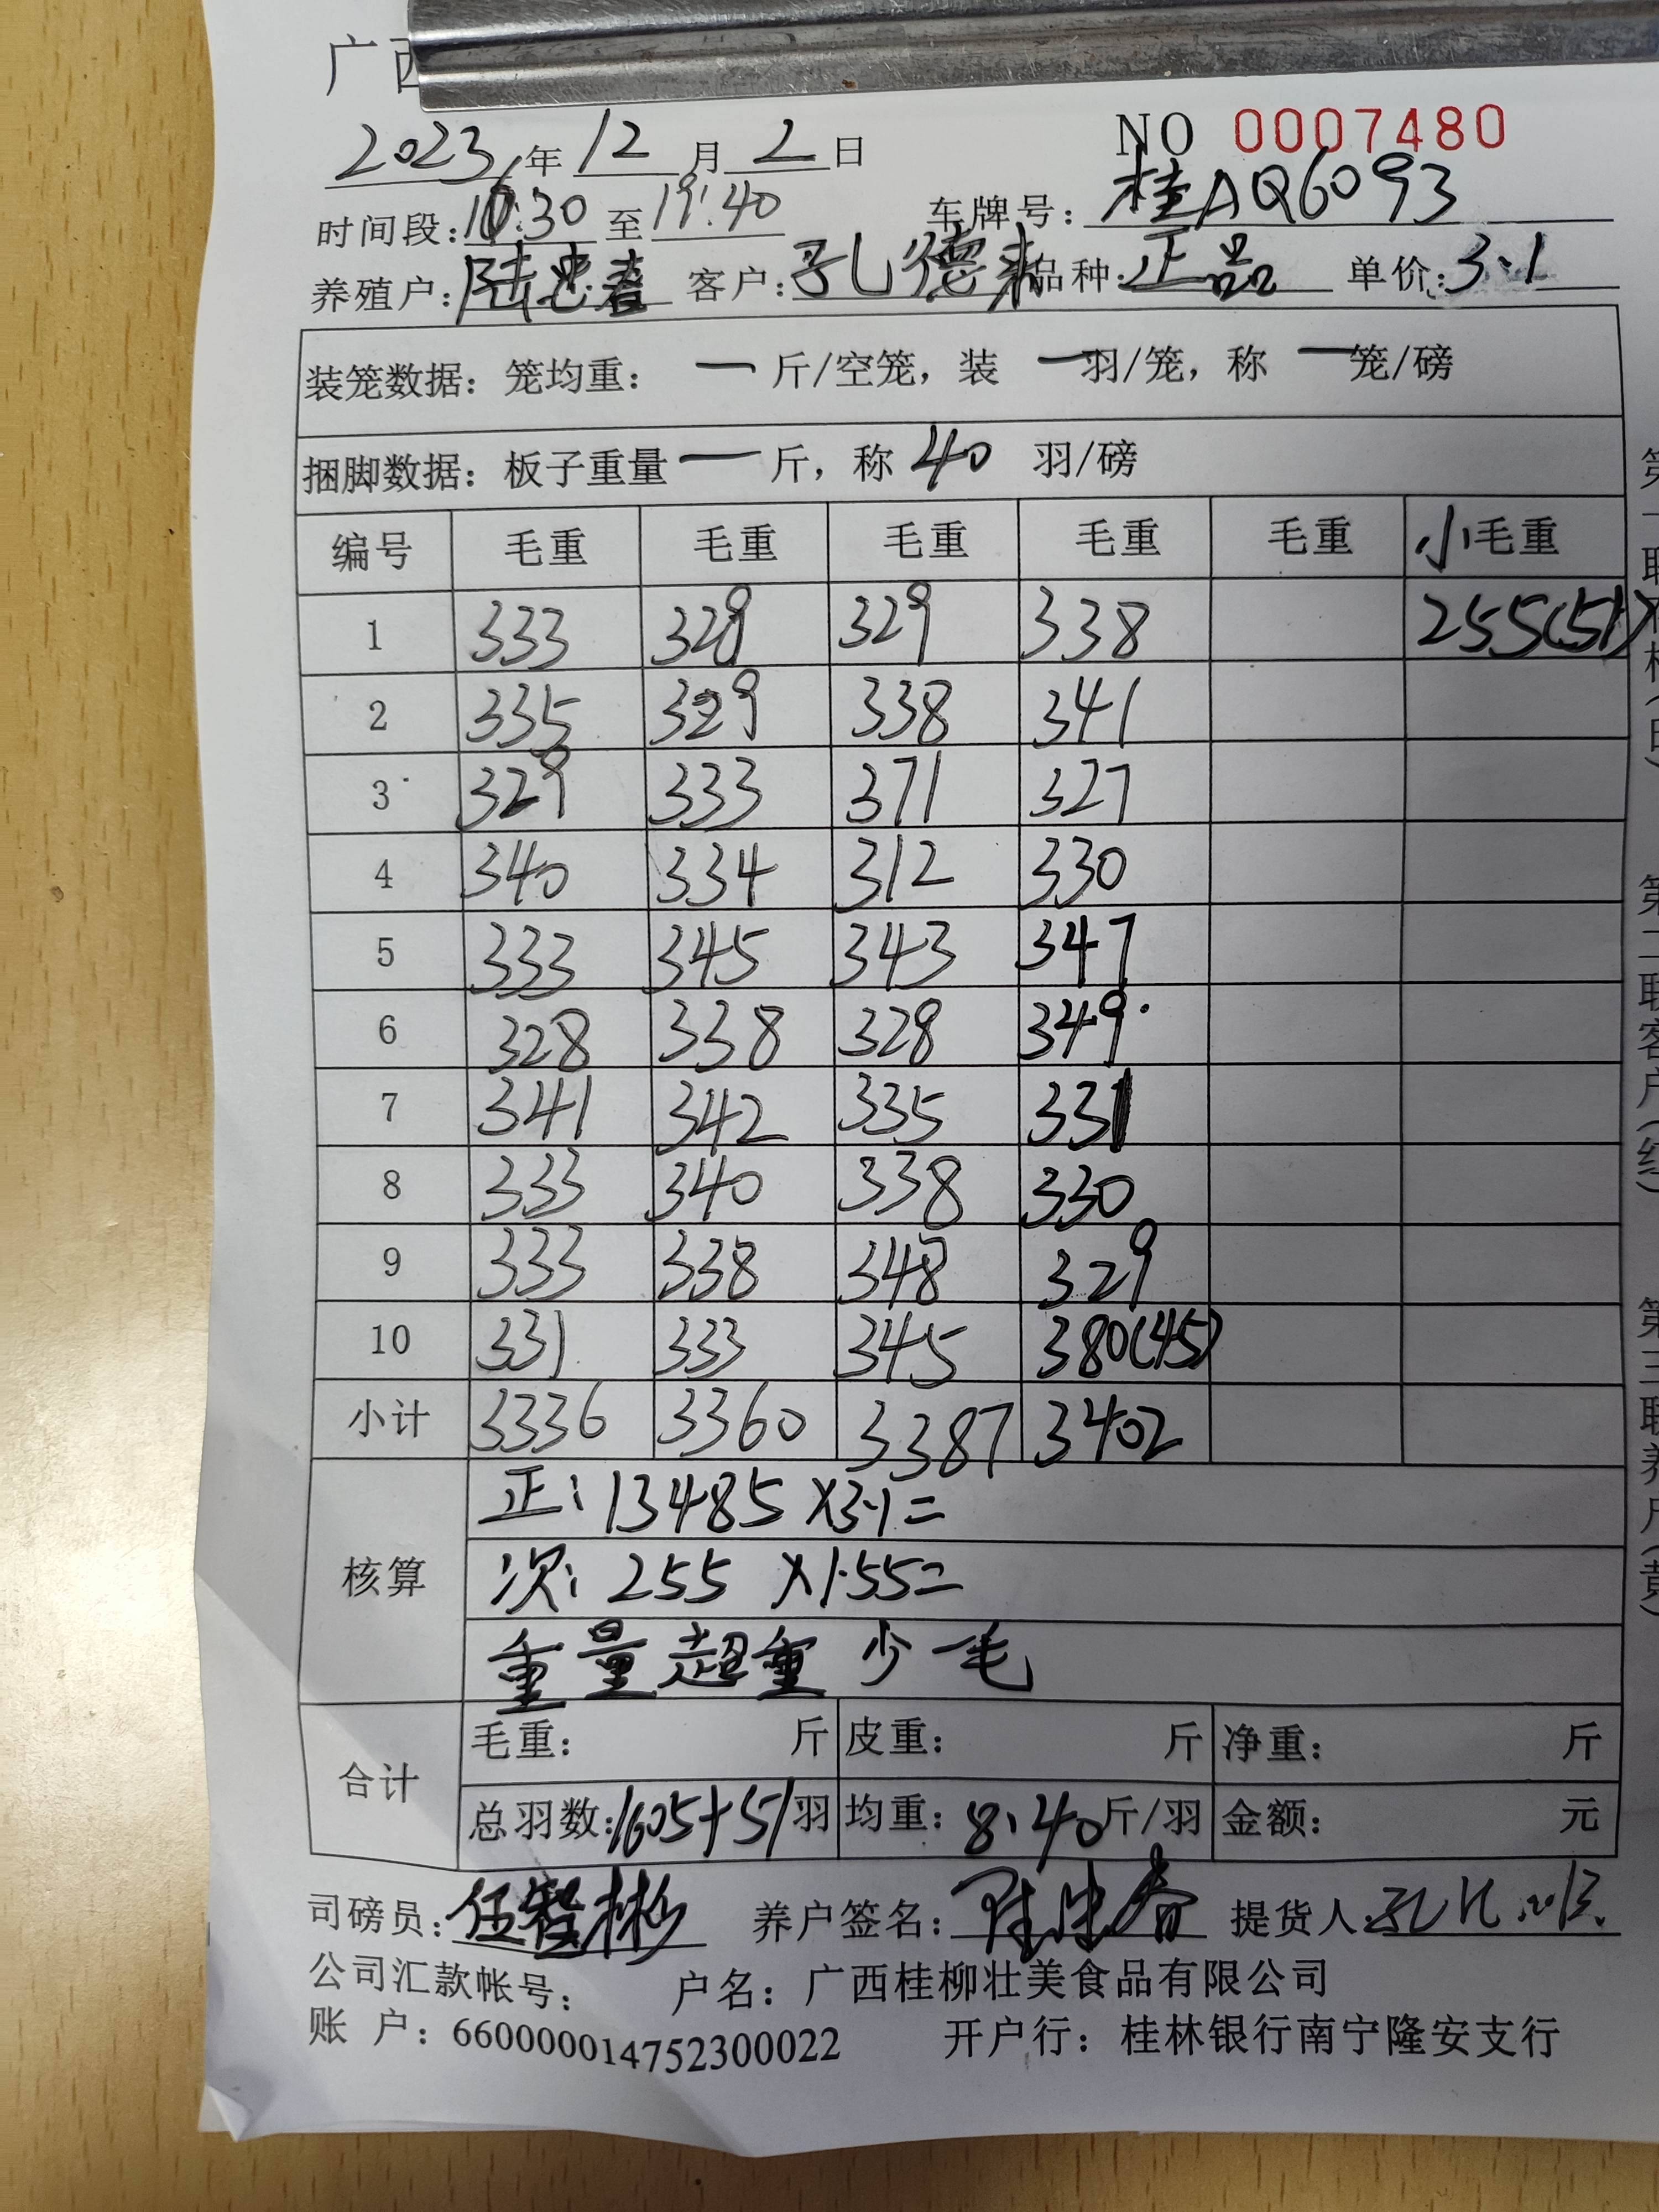 广西
NO 0007480
2023年12月2日
时间段:16:30至19:40 车牌号:桂AQ6093
养殖户:陆忠春 客户:孔德来 品种:正品 单价:3.1
装笼数据：笼均重：一斤/空笼，装一羽/笼，称一笼/磅
捆脚数据：板子重量一斤，称40羽/磅
编号 毛重 毛重 毛重 毛重 毛重 小毛重
1 333 329 329 338 255(51)
2 335 329 338 341
3 329 333 371 327
4 340 334 312 330
5 333 345 343 347
6 328 338 328 349
7 341 342 335 331
8 333 340 338 330
9 333 338 348 329
10 331 333 345 380(45)
小计 3336 3360 3387 3402
核算 正:13485×3.1=
次:255×1.55=
重量超重少一毛
合计 毛重：斤 皮重：斤 净重：斤
总羽数:1605+51羽 均重:8.40斤/羽 金额：元
司磅员:伍智彬 养户签名:陆忠春 提货人:
公司汇款帐号： 户名：广西桂柳壮美食品有限公司
账户：660000014752300022 开户行：桂林银行南宁隆安支行
第二联客户(红)
第三联养户(黄)